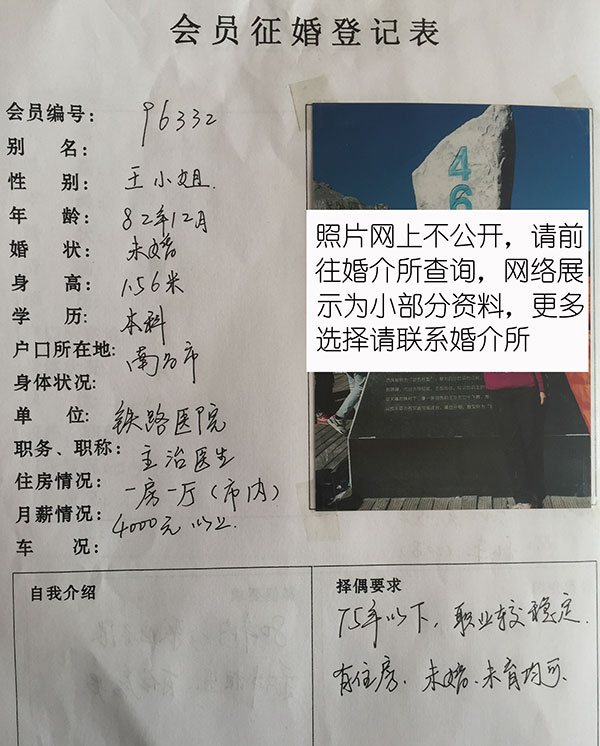 会员征婚登记表
会员编号: 96332
别 名:
性 别: 王小姐.
年 龄: 82年12月
婚 状: 未婚
身 高: 1.56米
学 历: 本科
户口所在地: 南宁市
身体状况:
单 位: 铁路医院
职务、职称: 主治医生
住房情况: 一房一厅(市内)
月薪情况: 4000元以上.
车 况:
46
照片网上不公开,请前
往婚介所查询,网络展
示为小部分资料,更多
选择请联系婚介所
自我介绍
择偶要求
75年以下,职业较稳定.
有住房.未婚.未育均可.